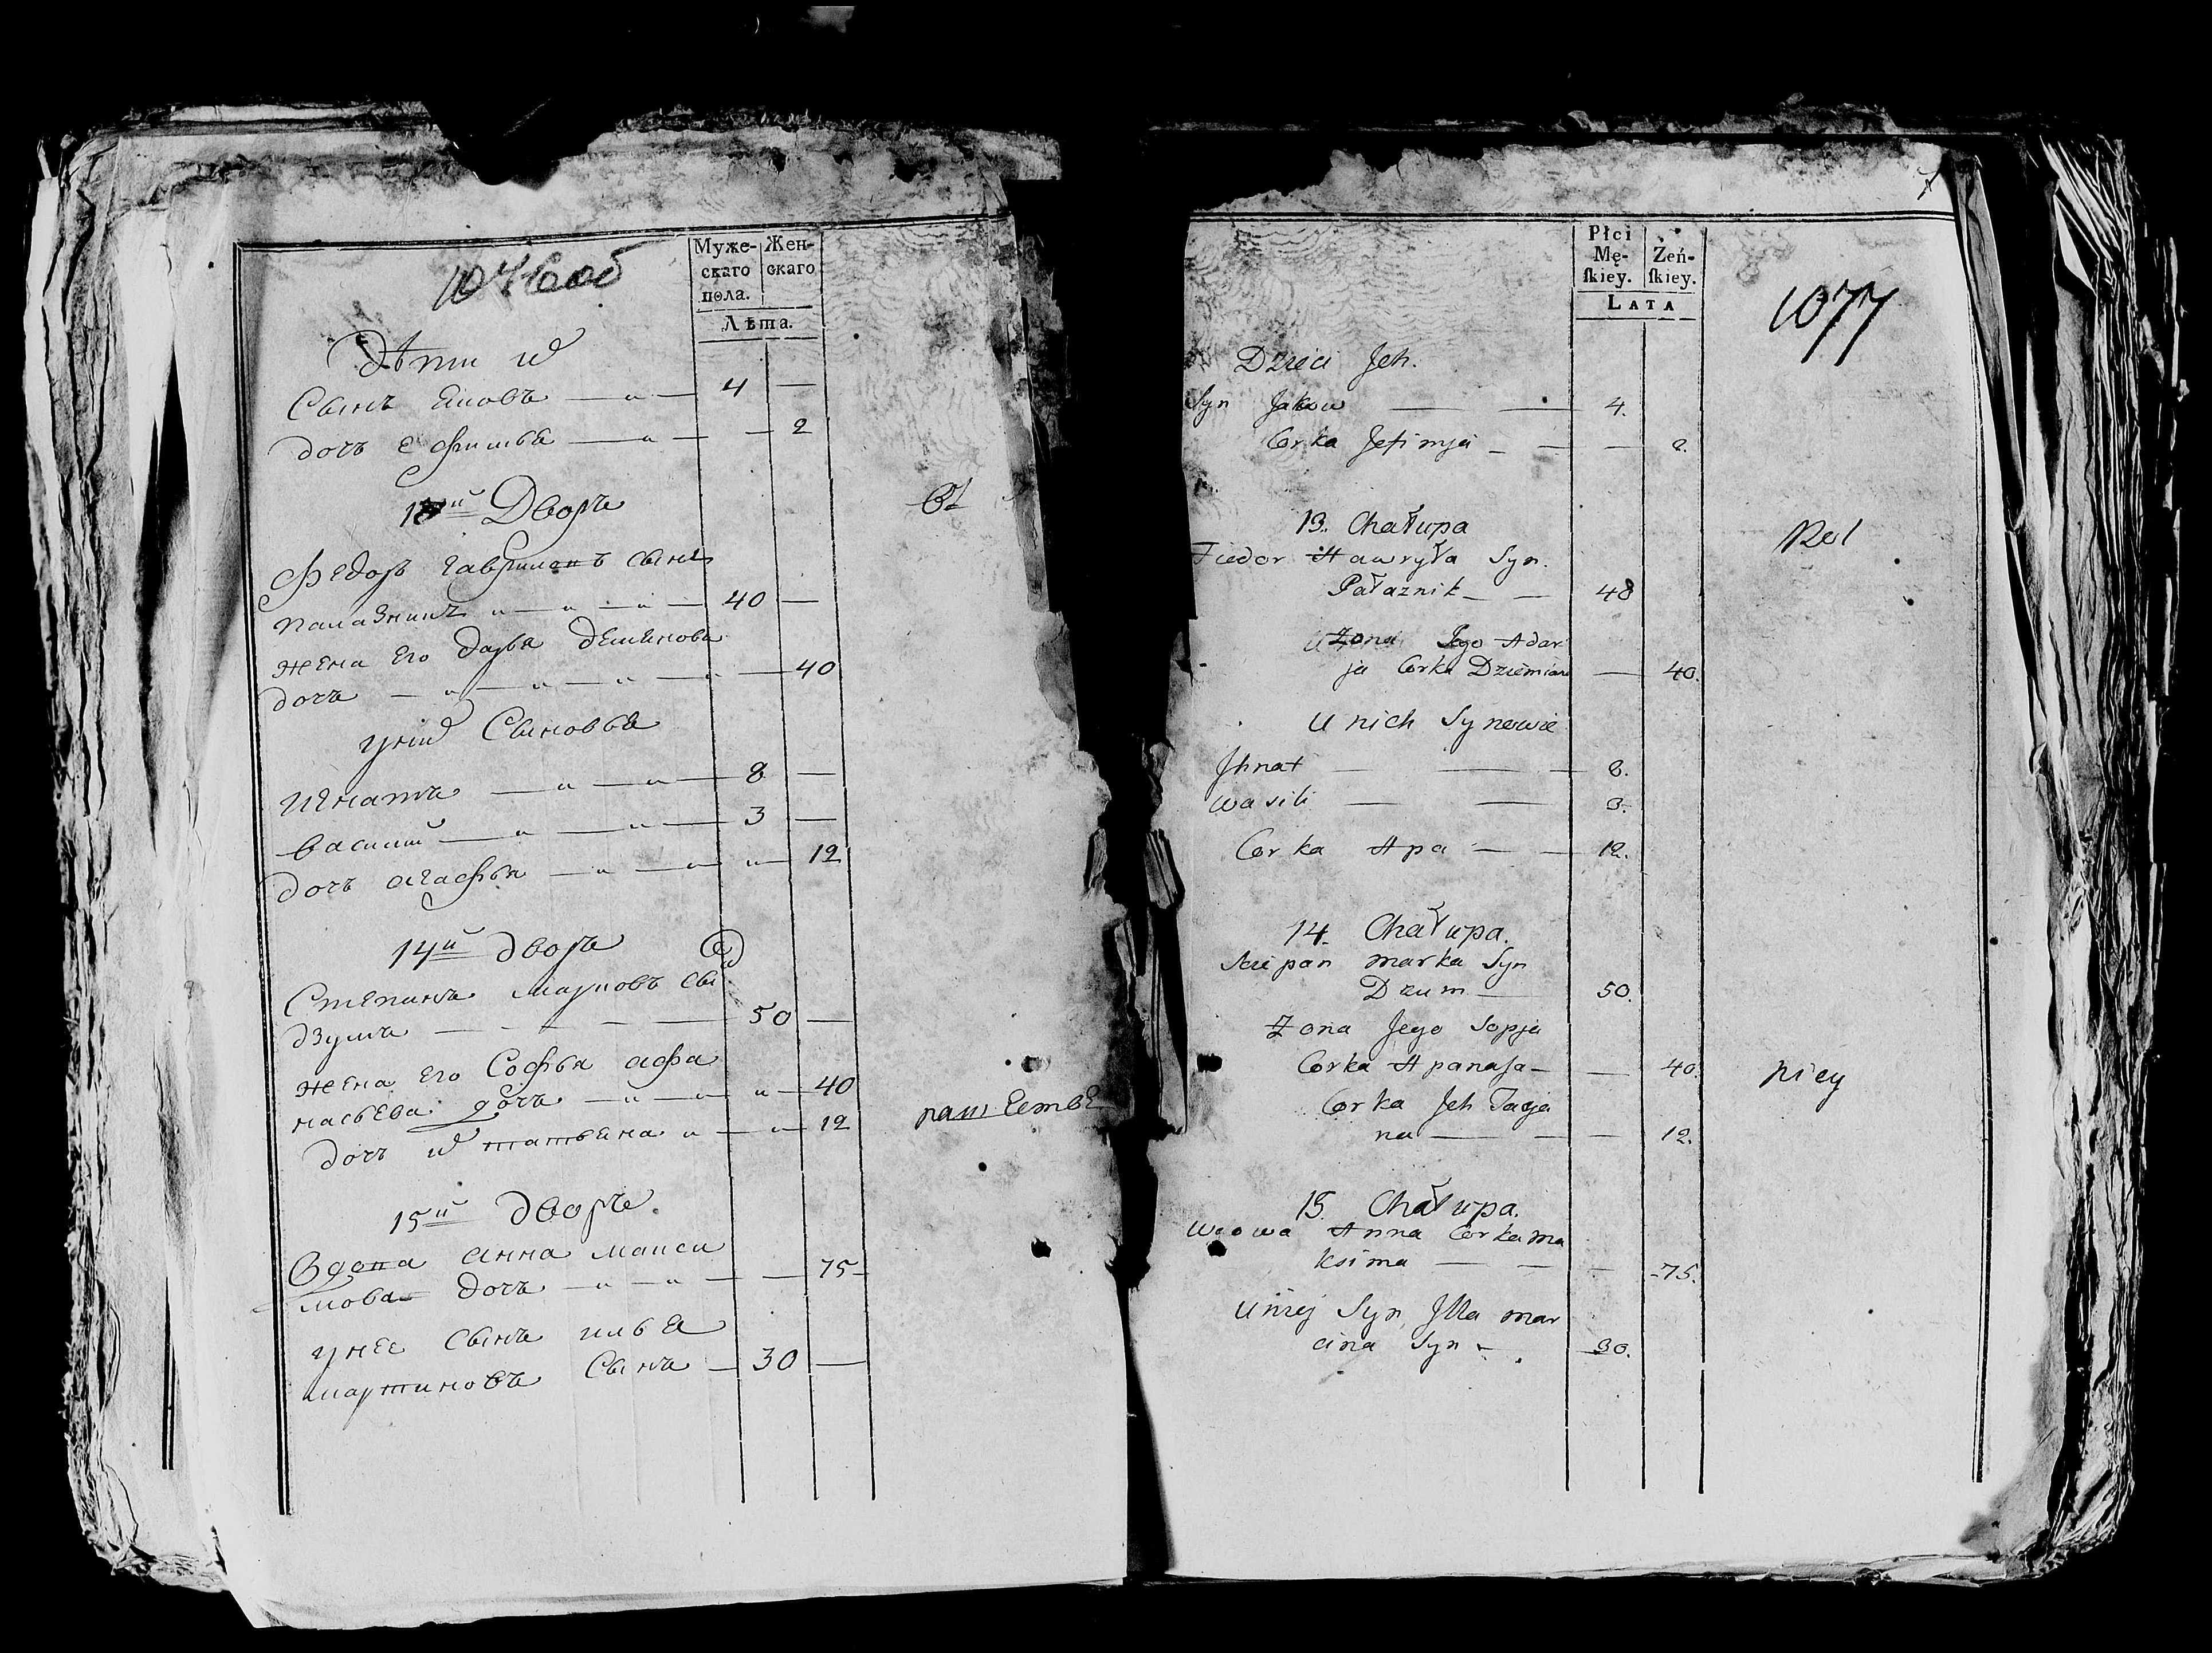 1076 об
Муже-
скаго
пола.
Жен-
скаго
Лѣта.
Дѣти их
Сынъ Яковъ 4 —
дочъ Ефимья — 2
13й Дворъ
Федоръ гавриловъ сынъ
палазникъ 40 —
жена Его дарья демьянова
дочъ — 40
у них Сыновья
Игнатъ 8 —
василий 3 —
дочъ агафья 12
14й дворъ
Степанъ марковъ сы
дзума 50 —
жена Его Софья афа
насьева дочъ 40
дочъ их татьяна 12
15й дворъ.
Вдова анна макси
мова дочъ — 75
у нее сынъ илья
мартиновъ Сынъ 30 —
въ
1077
Płci
Mę-
ſkiey.
Żeń-
ſkiey.
LATA
Dzieci Jch.
Syn Jakow 4.
Corka Jefimja — 2.
13. Chałupa
Fiedor Hawryła Syn.
Pałaznik 48
Zona Jego Adar
ja Corka Dziemiana — 40.
U nich Synowie
Jhnat 8.
wasili 3.
Corka Apa 12.
14. Chałupa.
Sciepan marka Syn
Dzum 50.
Zona Jego Sopja
Corka Apanaſa — 40.
Corka Jch Tacja
na — 12.
15. Chałupa.
Wdowa Anna Corka ma
ksima — 75.
U niej Syn Jlla mar
cina Syn 30.